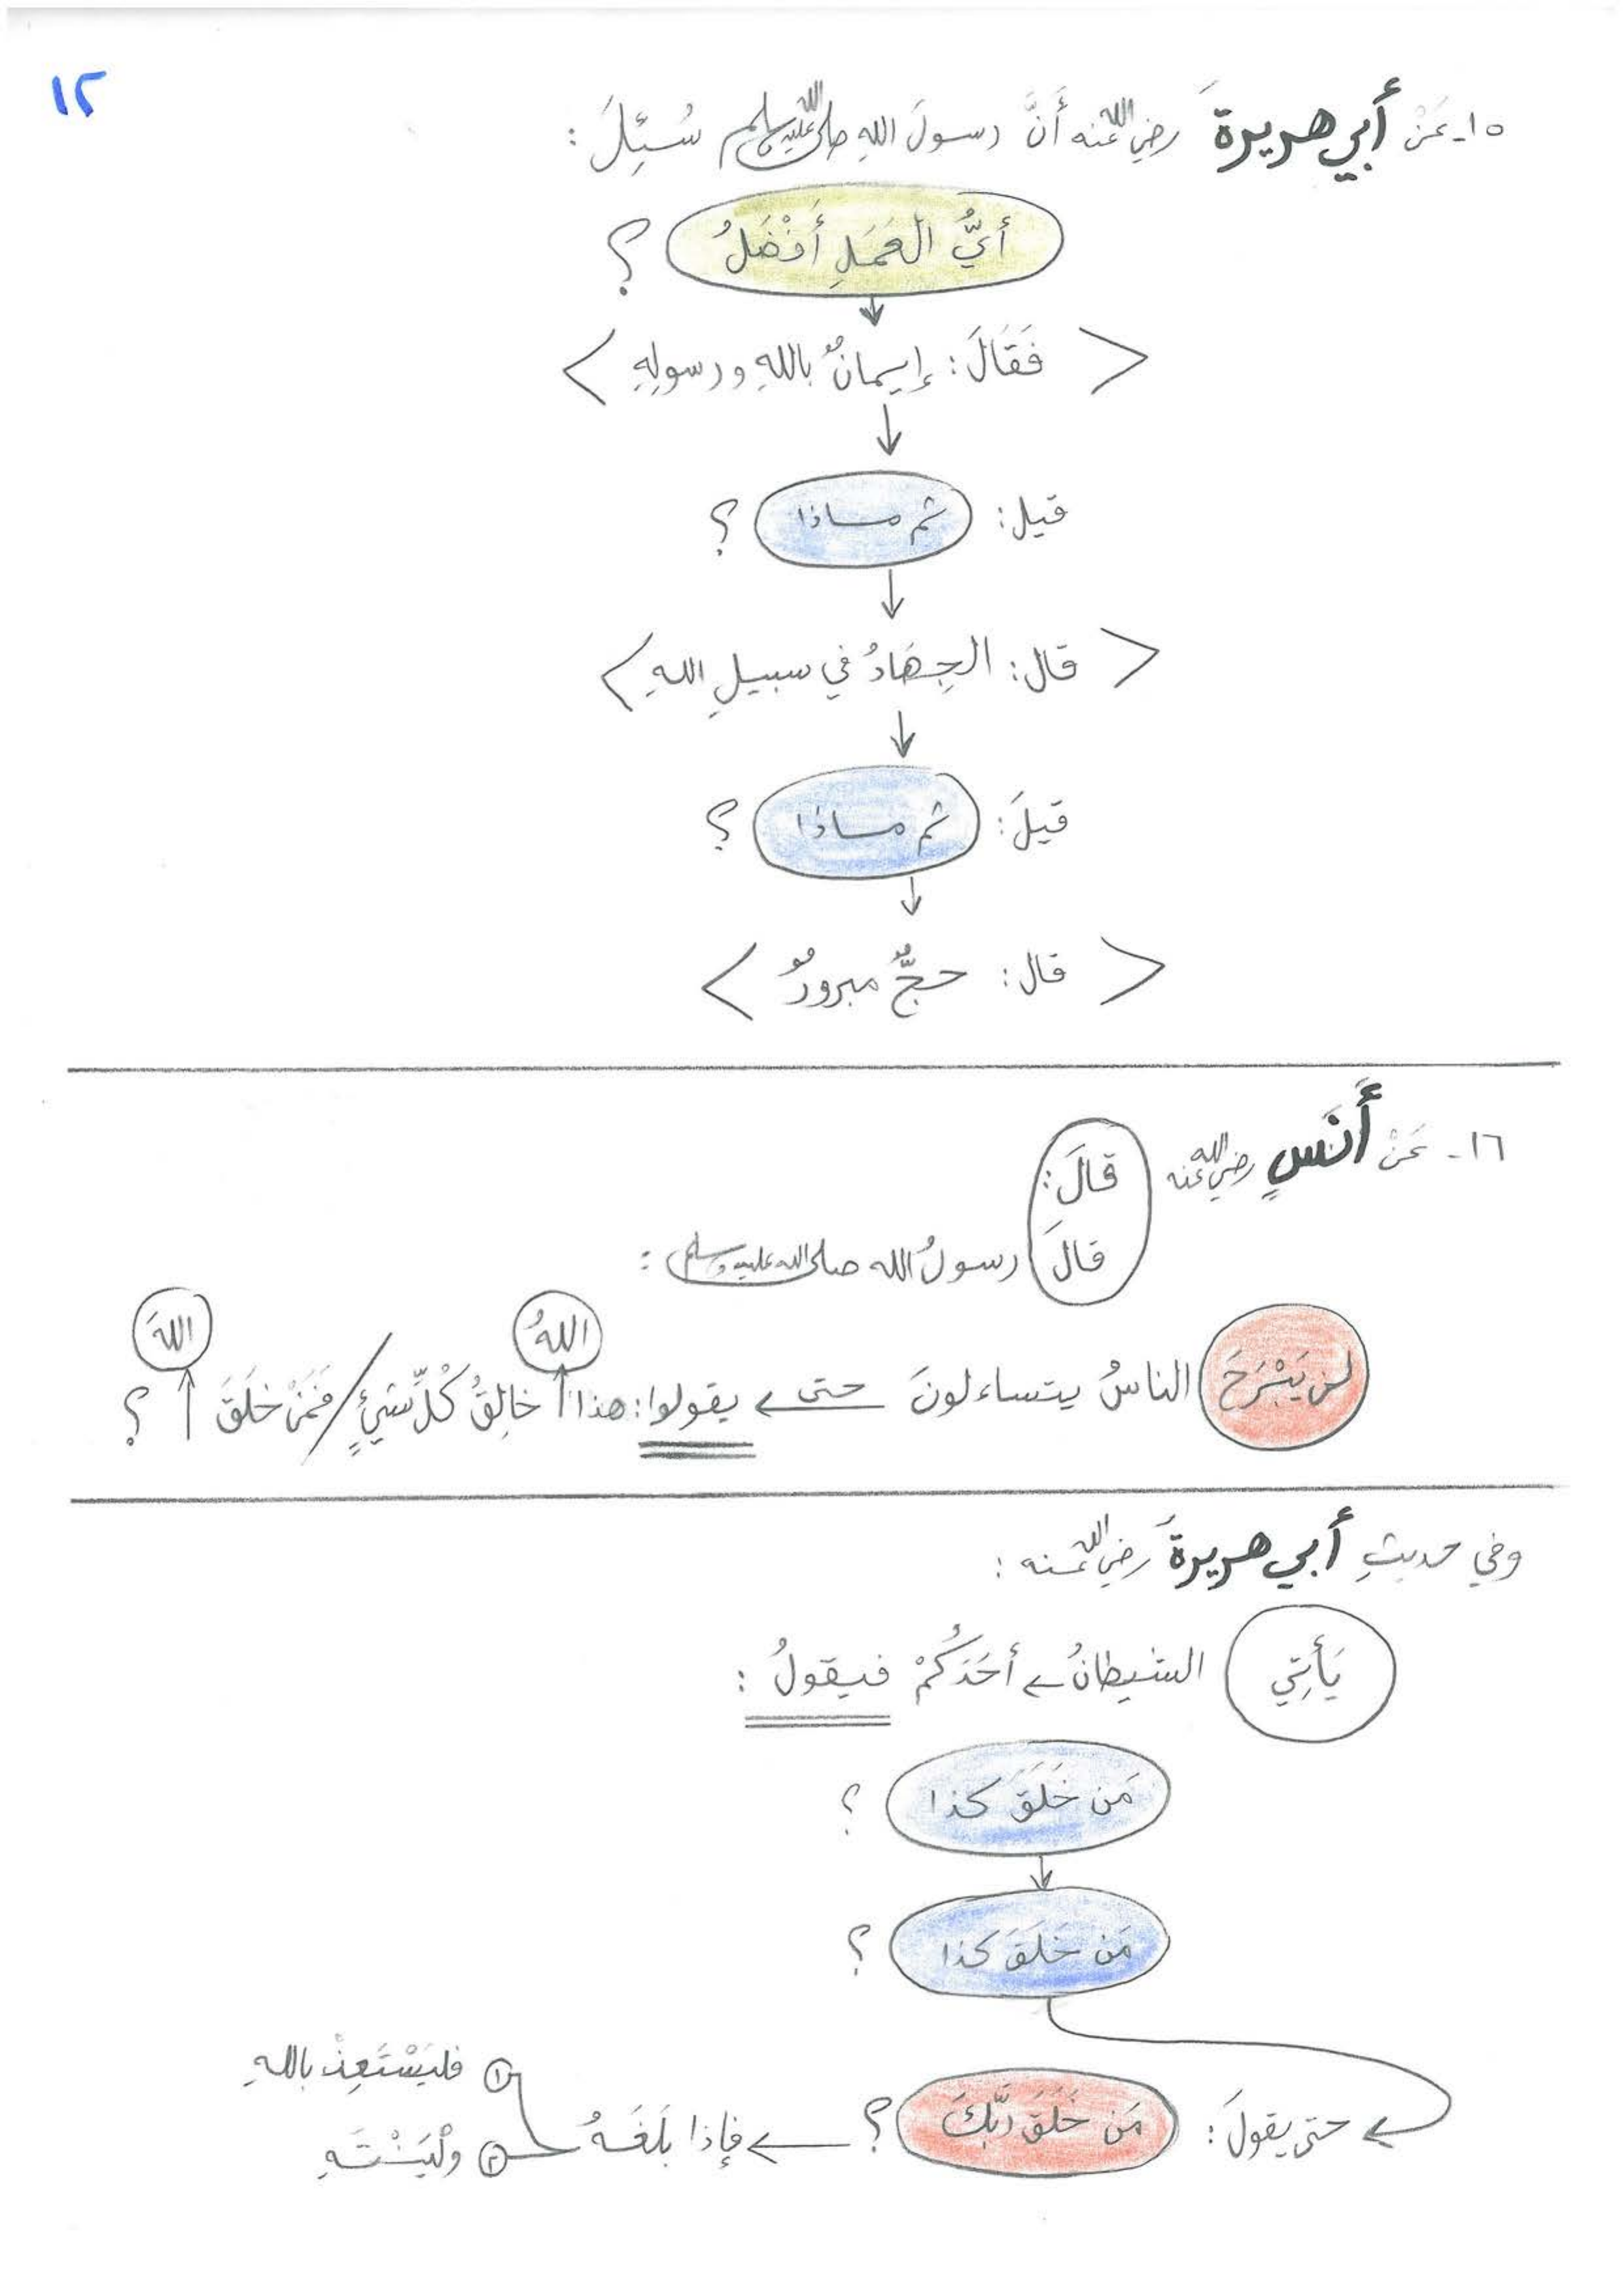 ١٢
١٥- عَنْ أَبي هريرةَ رضي الله عنه أَنَّ رسولَ اللهِ صلى الله عليه وسلم سُئِلَ :
أيُّ العَمَلِ أَفْضَلُ ؟
فَقَالَ : إيمانٌ باللهِ ورسولِهِ
قيل : ثم ماذا ؟
قال : الجِهَادُ في سبيلِ اللهِ
قيلَ : ثم ماذا ؟
قال : حجٌّ مبرورٌ
١٦- عَنْ أَنَسٍ رضي الله عنه قالَ :
قالَ رسولُ الله صلى الله عليه وسلم :
لن يَبْرَحَ الناسُ يتساءلونَ حتى يقولوا : هذا اللهُ خالِقُ كُلِّ شيءٍ / فَمَنْ خَلَقَ اللهَ ؟
وفي حديثِ أبي هريرةَ رضي الله عنه :
يَأْتِي الشيطانُ أحَدَكُمْ فيقولُ :
مَن خَلَقَ كذا ؟
مَن خَلَقَ كذا ؟
حتى يقولَ : مَن خَلَقَ رَبَّكَ ؟ فإذا بَلَغَهُ
١ فليَسْتَعِذْ باللهِ
٢ ولْيَنْتَهِ